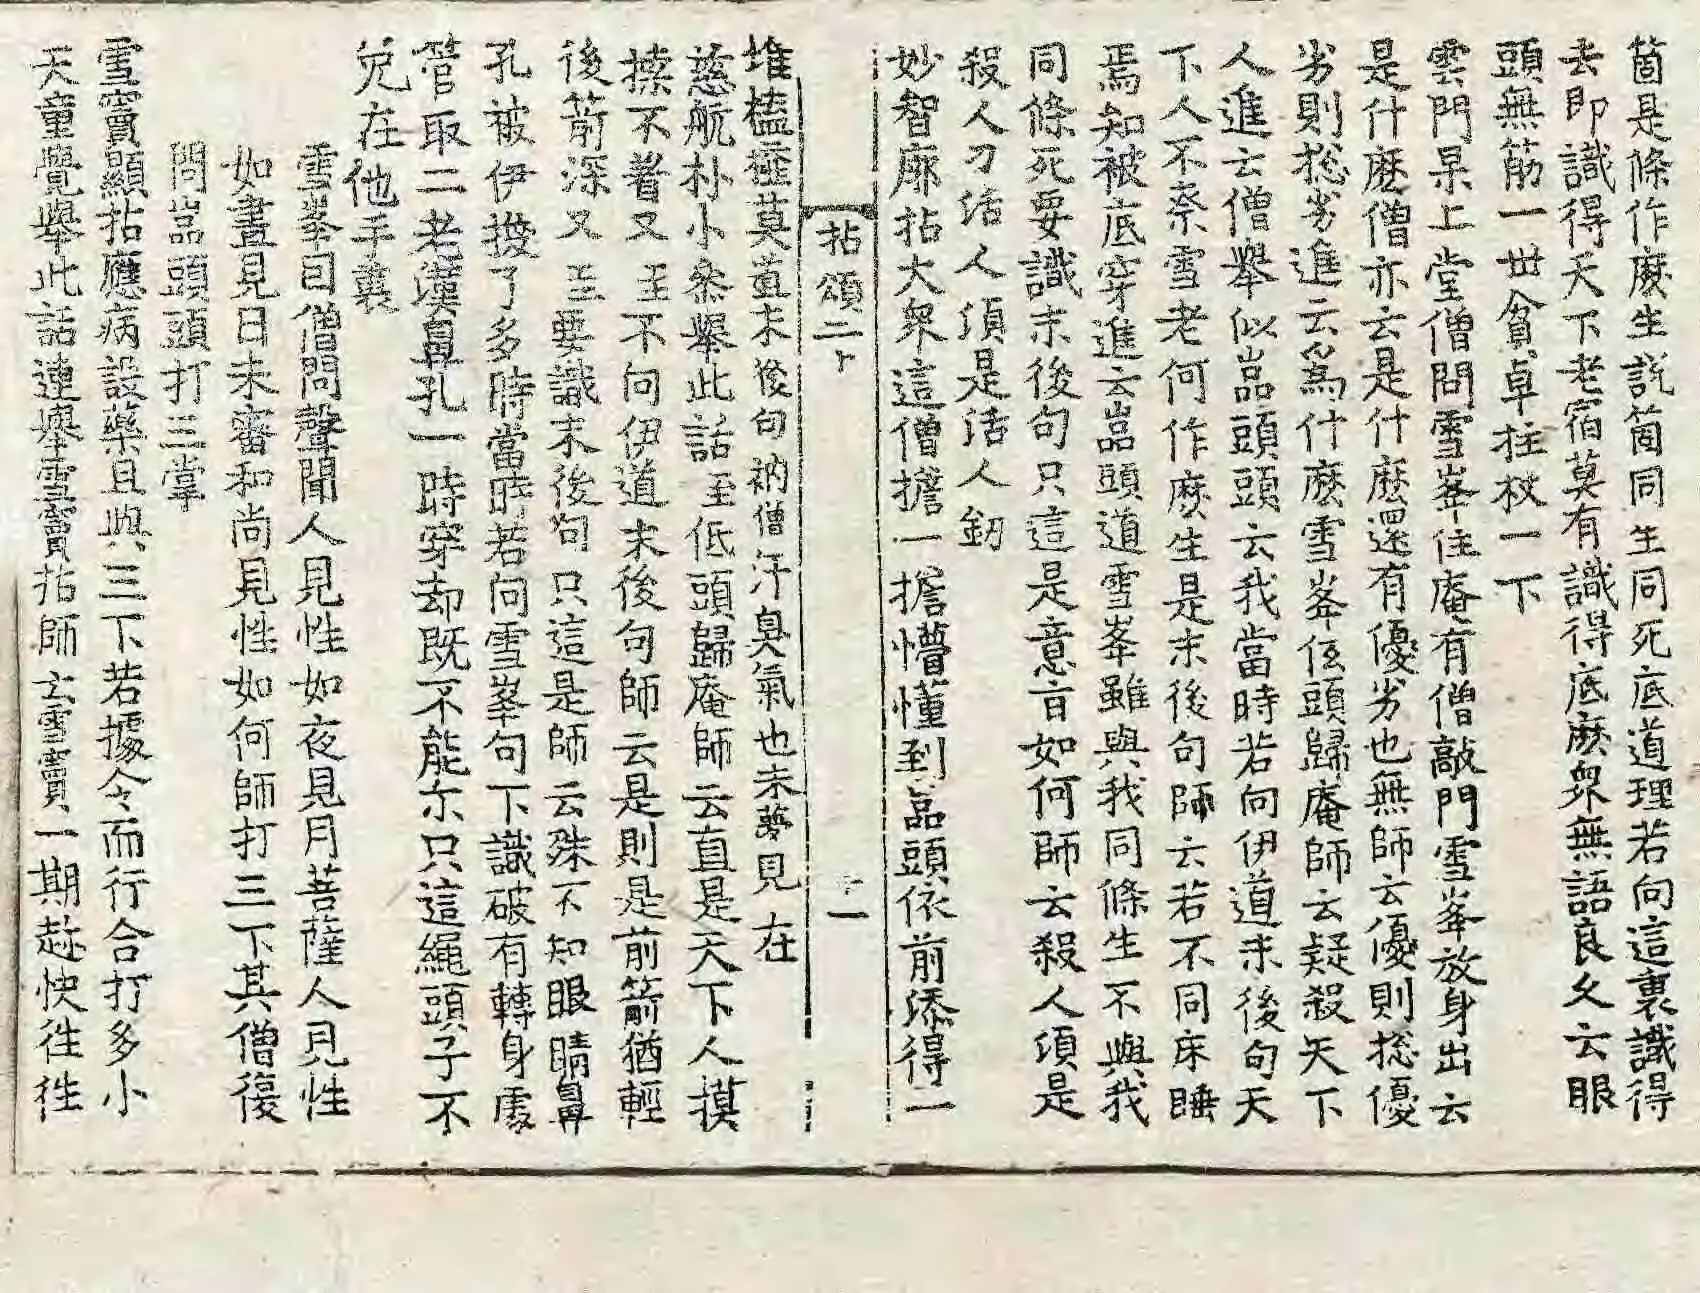 箇是條作麽生說箇同生同死底道理若向這裏識得
去即識得天下老宿莫有識得底麽衆無語良久云眼
頭無筋一世貧卓拄杖一下
雲門杲上堂僧問雪峯住庵有僧敲門雪峯放身出云
是什麽僧亦云是什麽還有優劣也無師云優則捴優
劣則捴劣進云爲什麽雪峯低頭歸庵師云疑殺天下
人進云僧舉似嵓頭頭云我當時若向伊道末後句天
下人不奈雪老何作麽生是末後句師云若不同床睡
焉知被底穿進云嵓頭道雪峯雖與我同條生不與我
同條死要識末後句只這是意旨如何師云殺人須是
殺人刀活人須是活人劒
妙智廓拈大衆這僧擔一擔懵懂到嵓頭依前添得一
拈頌二十
二
堆榼𣜂莫道末後句衲僧汗臭氣也未夢見在
慈航朴小叅舉此話至低頭歸庵師云直是天下人摸
㨾不着又至不向伊道末後句師云是則是前箭猶輕
後箭深又至要識末後句只這是師云殊不知眼睛鼻
孔被伊換了多時當時若向雪峯句下識破有轉身處
管取二老漢鼻孔一時穿却既不能尒只這繩頭子不
免在他手裏
雪峯因僧問聲聞人見性如夜見月菩薩人見性
如晝見日未審和尚見性如何師打三下其僧復
問嵓頭頭打三掌
雪竇顯拈應病設藥且與三下若據令而行合打多小
天童覺舉此話連舉雪竇拈師云雪竇一期趂快往往